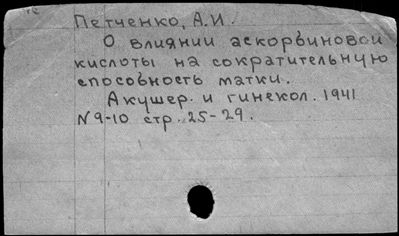 Петченко, А.И.
О влиянии аскорбиновой
кислоты на сократительную
способность матки.
Акушер. и гинекол. 1941
№9-10 стр. 25-29.